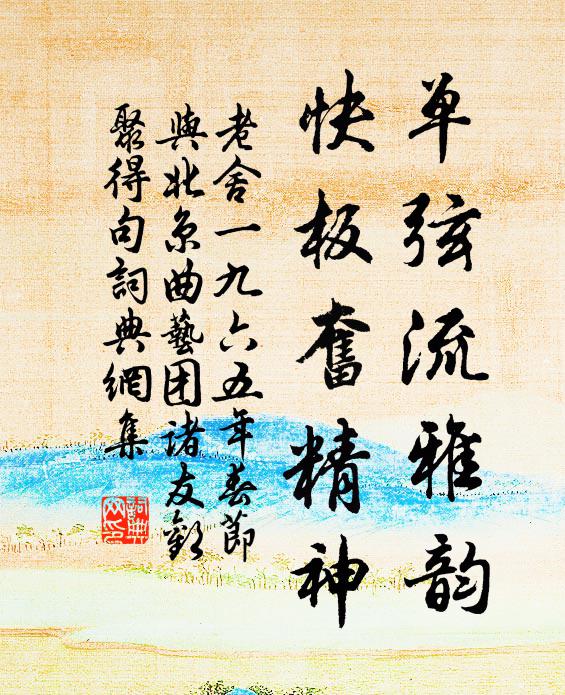 单弦流雅韵
快板奮精神
老舍一九六五年春節
與北京曲藝团諸友歡
聚得句詞典網集
詞典網印